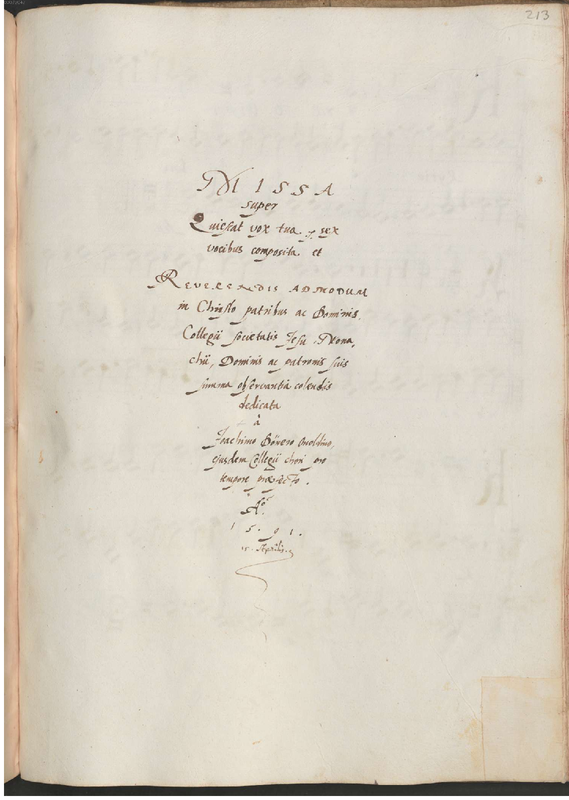 213
MISSA
super
Quiescat vox tua. 6. sex
vocibus composita. et
REVERENDIS ADMODUM
in Christo patribus ac Dominis.
Collegii societatis Jesu Mona,
chii, Dominis ac patronis suis
summa observantia colendis
dedicata
à
Joachimo
ejusdem Collegii chori pro
tempore præfecto.
Aº.
1591.
Aprilis.